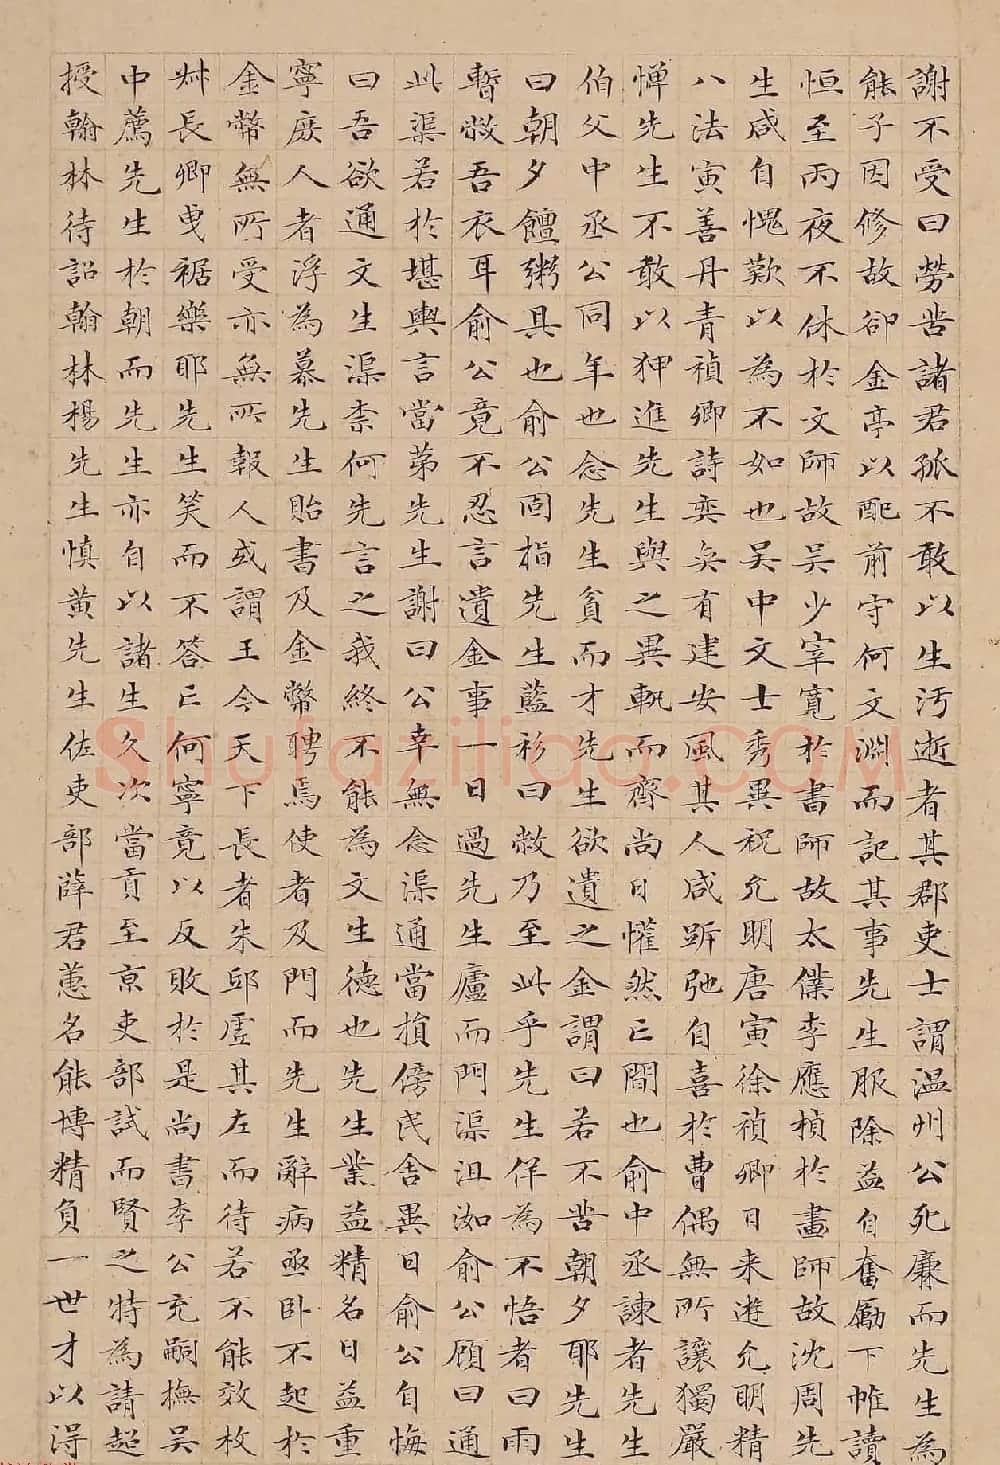 謝不受曰勞苦諸君孤不敢以生污逝者其郡吏士謂温州公死廉而先生為
能子因修故卻金亭以配前守何文淵而記其事先生服除益自奮勵下帷讀
恒至丙夜不休於文師故吴少宰寛於書師故太僕李應楨於畫師故沈周先
生咸自愧歎以為不如也吴中文士秀異祝允明唐寅徐禎卿日来遊允明精
八法寅善丹青禎卿詩奕奕有建安風其人咸跅弛自喜於曹偶無所讓獨嚴
憚先生不敢以狎進先生與之異軌而齊尚日懽然亡間也俞中丞諫者先生
伯父中丞公同年也念先生貧而才先生欲遺之金謂曰若不苦朝夕耶先生
曰朝夕饘粥具也俞公固指先生藍衫曰敝乃至此乎先生佯為不悟者曰雨
暫敝吾衣耳俞公竟不忍言遺金事一日過先生廬而門渠沮洳俞公顧曰通
此渠若於堪輿言當苐先生謝曰公幸無念渠通當損傍民舍異日俞公自悔
曰吾欲通文生渠柰何先言之我終不能為文生德也先生業益精名日益重
寧庶人者浮為慕先生貽書及金幣聘焉使者及門而先生辭病亟卧不起於
金幣無所受亦無所報人或謂王今天下長者朱邱虚其左而待若不能效枚
叔長卿曳裾樂耶先生笑而不答亡何寧竟以反敗於是尚書李公充嗣撫吴
中薦先生於朝而先生亦自以諸生久次當貢至京吏部試而賢之特為請超
授翰林待詔翰林楊先生慎黄先生佐吏部薛君蕙名能博精負一世才以得
Shufaziliao.COM